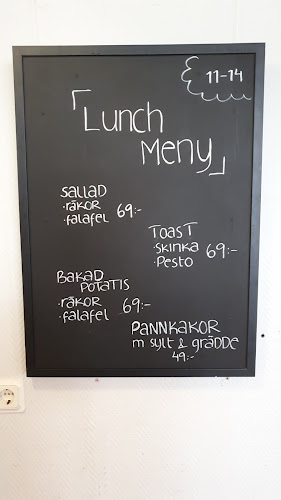 11-14
Lunch
Meny
Sallad
·räkor
·falafel 69:-
Toast
Skinka 69:-
·Pesto
Bakad
potatis
·räkor 69:-
·falafel
Pannkakor
m sylt & grädde
49:-